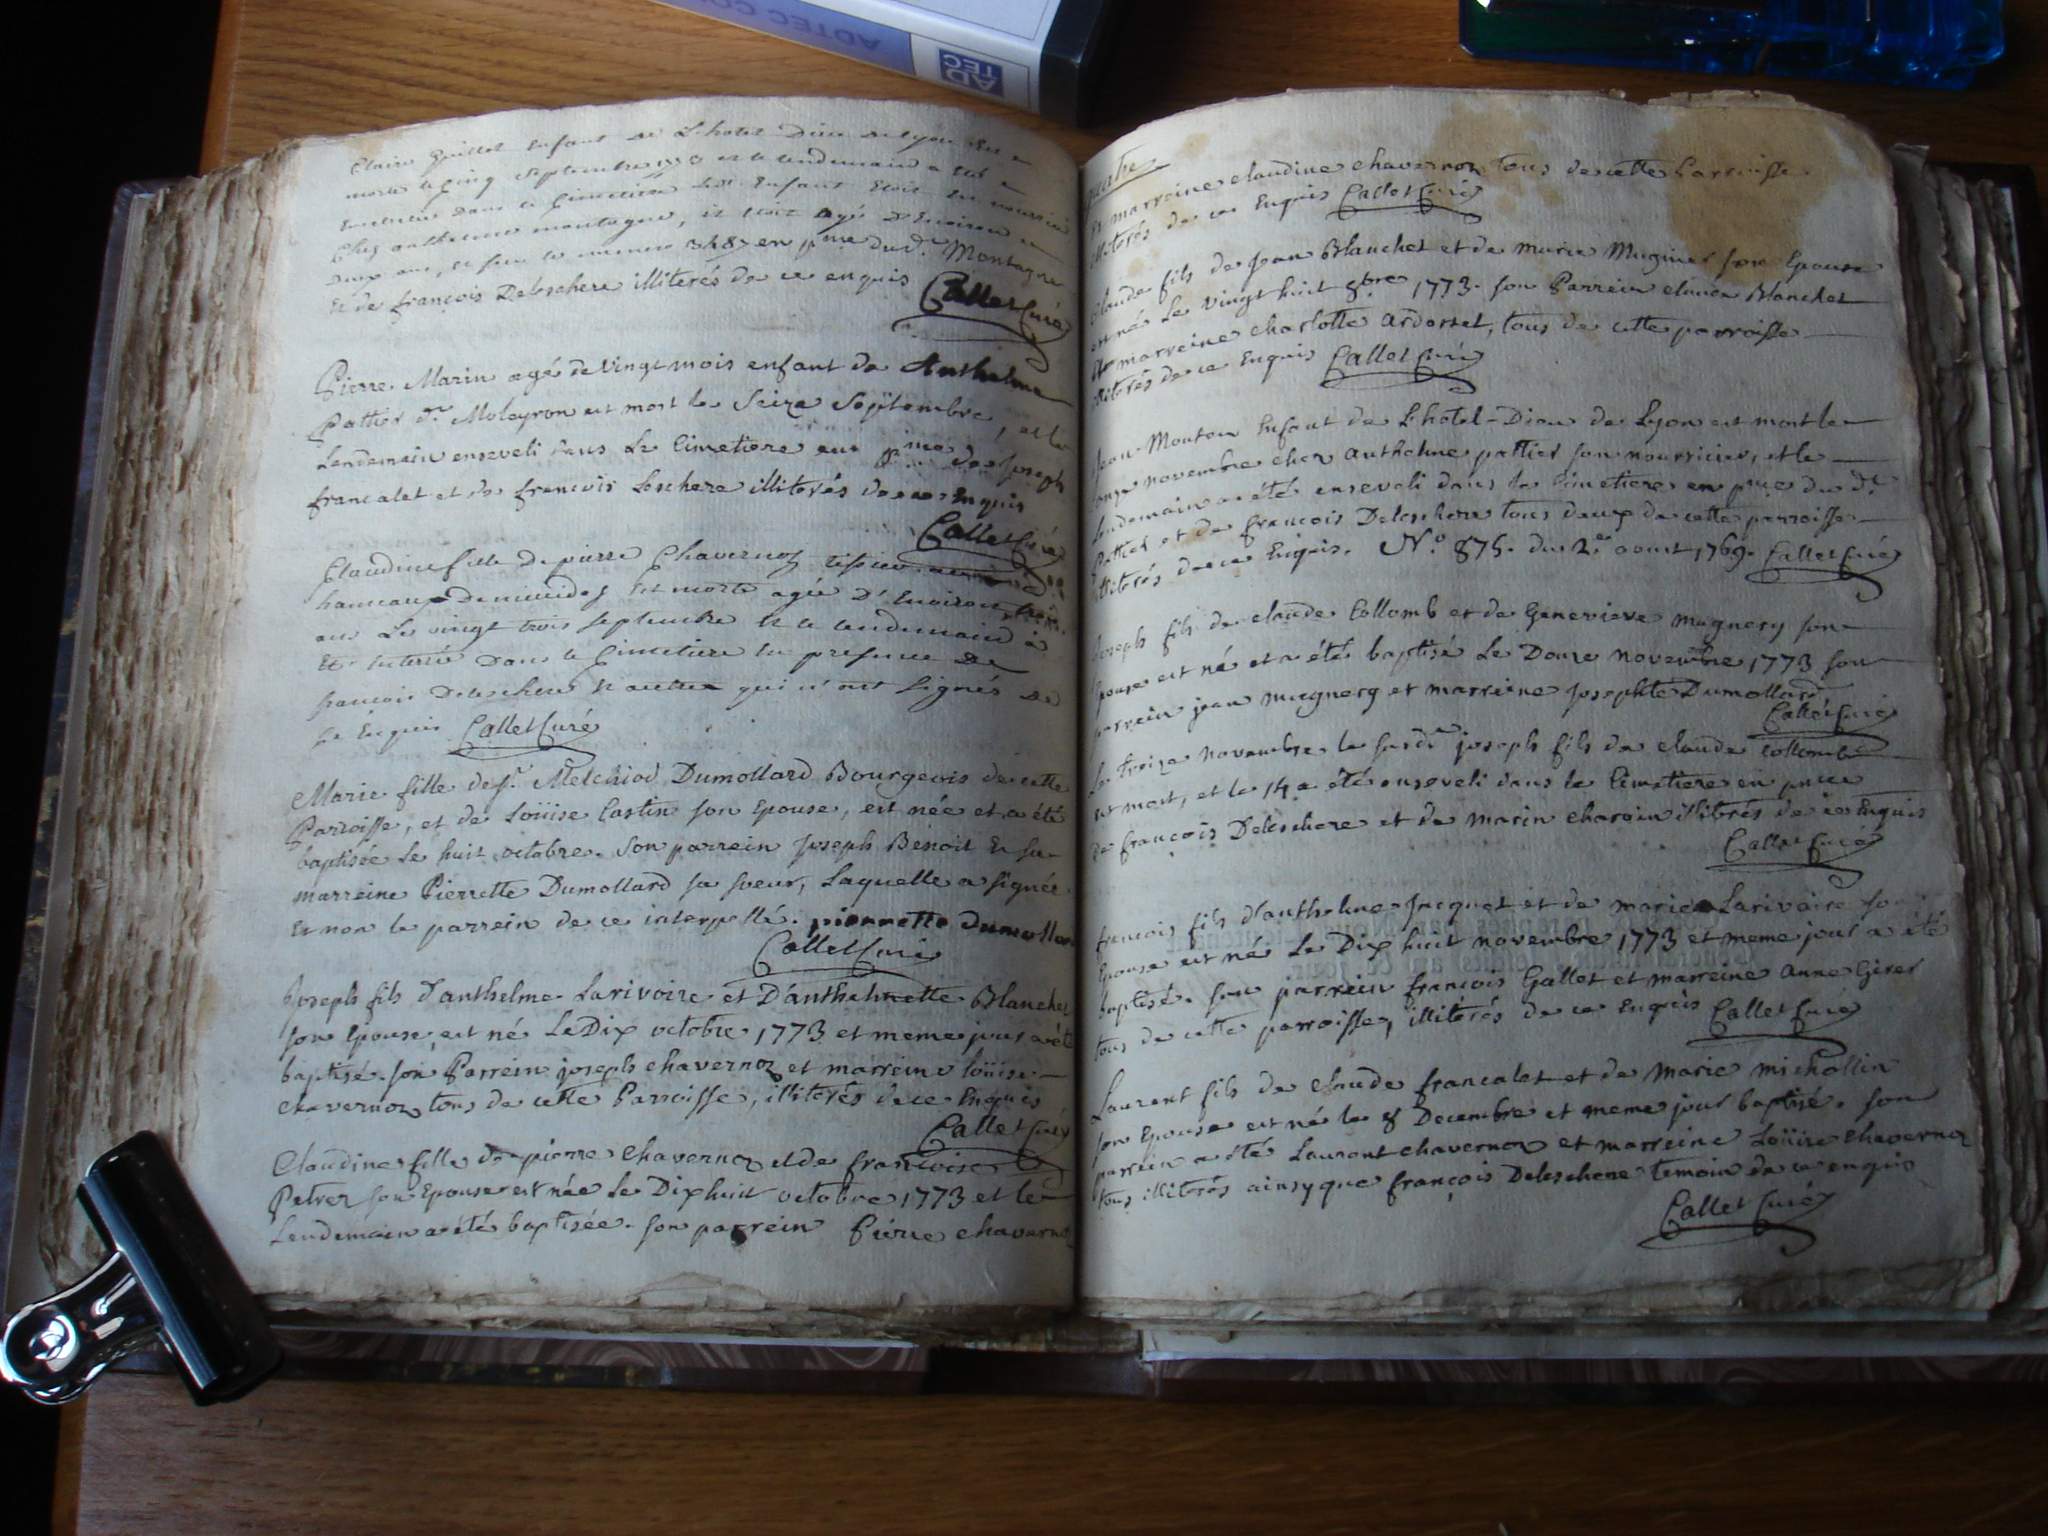 ADTEC CO
AD
TEC
Claire Guillet Enfant de L'hotel Dieu de Lyon est
morte le cinq Septembre 1773 et le lendemain a été
Enterrée dans le Cimetière Enfant étoit En nourrice
Chez anthelme montagne, il étoit agé d'Environ
deux ans, et sous le numero 3487 en pnce du dt Montagne
Et de françois Deleschere illiterés de ce enquis Callet Curé
Pierre Marin agé de vingt mois enfant de Anthelme
Pattier dt Moleyron est mort le Seize Septembre, et le
Lendemain enseveli dans Le Cimetiere en pnce de Joseph
francalet et de francois Leschere illiterés de ce Enquis
Callet Curé
Claudine fille De pierre Chavernoz tissier
hameau De est morte agée D'Environ trois
ans Le vingt trois septembre Et le lendemain a
Eté Enterrée Dans le Cimetiere En presence De
françois Deleschere Et autre qui n'ont signés de
ce Enquis Callet Curé
Marie fille de sr. Melchiod Dumollard Bourgeois de cette
Parroisse, et de Loüise Costin son Epouse, est née et a été
baptisée Le huit octobre. Son parrein Joseph Benoit Et sa
marreine Pierrette Dumollard sa soeur, Laquelle a signée
Et non le parrein de ce interpellé. pierrette dumollar
Callet Curé
Joseph fils d'anthelme Larivoire et D'anthelmette Blanchet
son Epouse, est né Le Dix octobre 1773 et meme jour a été
baptisé. son Parrein joseph chavernoz et marreine loüise
chavernoz tous de cette Parroisse, illiterés de ce Enquis
Callet Curé
Claudine fille de pierre chavernoz et de francoise
Petrez son Epouse est née Le Dix huit octobre 1773 et le
Lendemain a été baptisée. son parrein Pierre chavernoz
Et marreine claudine chavernoz tous de cette Parroisse.
illiterés de ce Enquis Callet Curé
Claude fils de Jean Blanchet et de marie Muginer son Epouse
est né Le vingt huit 8bre 1773. son Parrein Blanchet
Et marreine charlotte ardorset, tous de cette parroisse
illiterés de ce Enquis Callet Curé
Jean Mouton Enfant de L'hotel-Dieu de Lyon est mort le
onze novembre chez anthelme pattier son nourricier, et le
lendemain a été enseveli dans le Cimetiere en pnce du dt
Pattier et de francois Deleschere tous deux de cette parroisse
illiterés de ce Enquis. No. 875. du 2e aoust 1769. Callet Curé
Joseph fils de claude Collomb et de Genevieve mugnery son
Epouse est né et a été baptisé Le Douze novembre 1773 son
parrein jean mugnery et marreine Josephte Dumollard
Callet Curé
Le treize novembre le susdt joseph fils de claude collomb
est mort, et le 14 a été enseveli dans le Cimetiere en pnce
de françois Deleschere et de marin charoin illiterés de ce Enquis
Callet Curé
francois fils d'anthelme Jacquet et de marie Larivoire son
Epouse est né Le Dix huit novembre 1773 et meme jour a été
baptisé. son parrein françois Gallet et marreine anne Girer
tous de cette parroisse, illiterés de ce Enquis Callet Curé
Laurent fils de claude francalet et de marie michollin
son Epouse est né le 8 Decembre et meme jour baptisé. son
parrein a été Laurent chavernoz et marreine Loüise chavernoz
tous illiterés ainsy que françois Deleschere temoin de ce enquis
Callet Curé